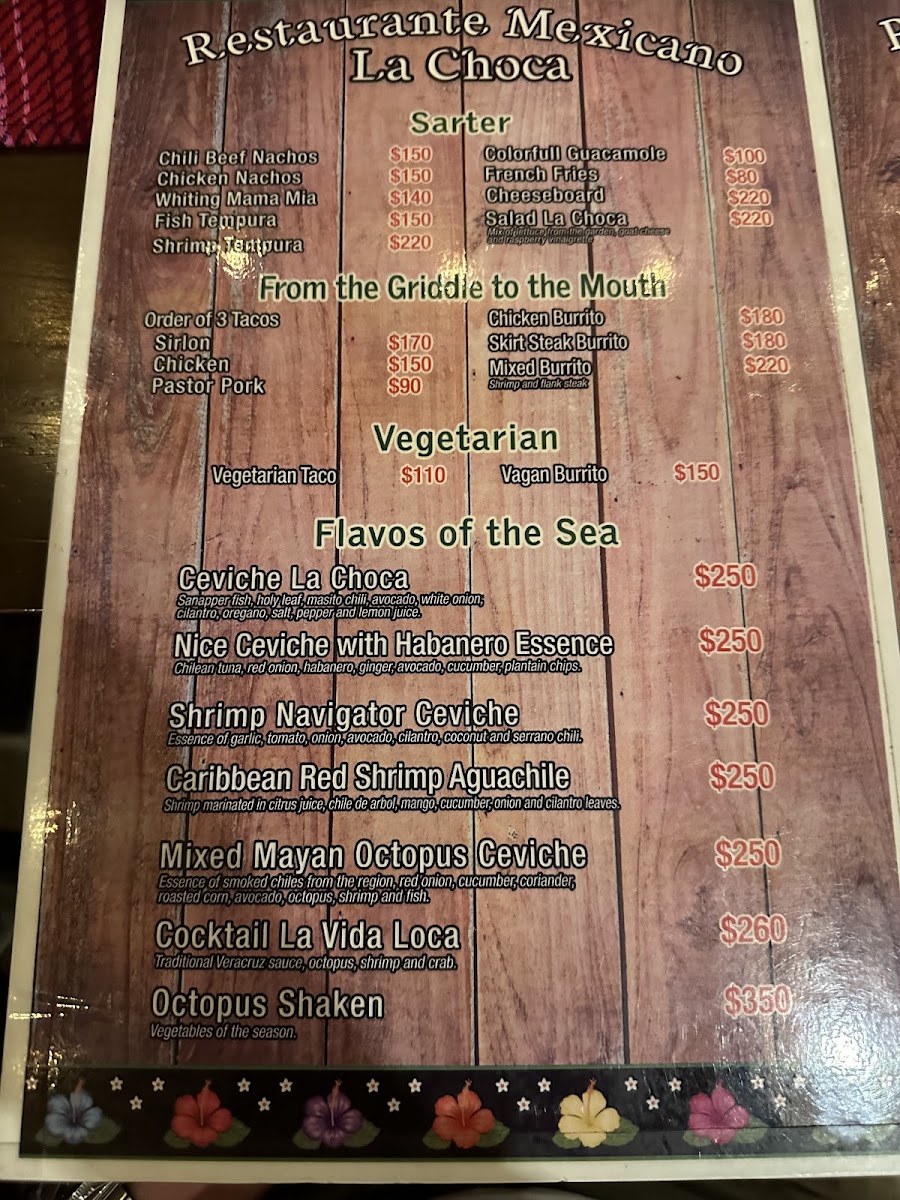 Restaurante Mexicano
La Choca
Sarter
Chili Beef Nachos $150
Chicken Nachos $150
Whiting Mama Mia $140
Fish Tempura $150
Shrimp Tempura $220
Colorfull Guacamole $100
French Fries $80
Cheeseboard $220
Salad La Choca $220
Mix of lettuce, from the garden, goat cheese
and raspberry vinaigrette
From the Griddle to the Mouth
Order of 3 Tacos
Sirlon $170
Chicken $150
Pastor Pork $90
Chicken Burrito $180
Skirt Steak Burrito $180
Mixed Burrito $220
Shrimp and flank steak
Vegetarian
Vegetarian Taco $110
Vagan Burrito $150
Flavos of the Sea
Ceviche La Choca $250
Sanapper fish, holy leaf, masito chili, avocado, white onion,
cilantro, oregano, salt, pepper and lemon juice.
Nice Ceviche with Habanero Essence $250
Chilean tuna, red onion, habanero, ginger, avocado, cucumber, plantain chips.
Shrimp Navigator Ceviche $250
Essence of garlic, tomato, onion, avocado, cilantro, coconut and serrano chili.
Caribbean Red Shrimp Aguachile $250
Shrimp marinated in citrus juice, chile de arbol, mango, cucumber, onion and cilantro leaves.
Mixed Mayan Octopus Ceviche $250
Essence of smoked chiles from the region, red onion, cucumber, coriander,
roasted corn, avocado, octopus, shrimp and fish.
Cocktail La Vida Loca $260
Traditional Veracruz sauce, octopus, shrimp and crab.
Octopus Shaken $350
Vegetables of the season.